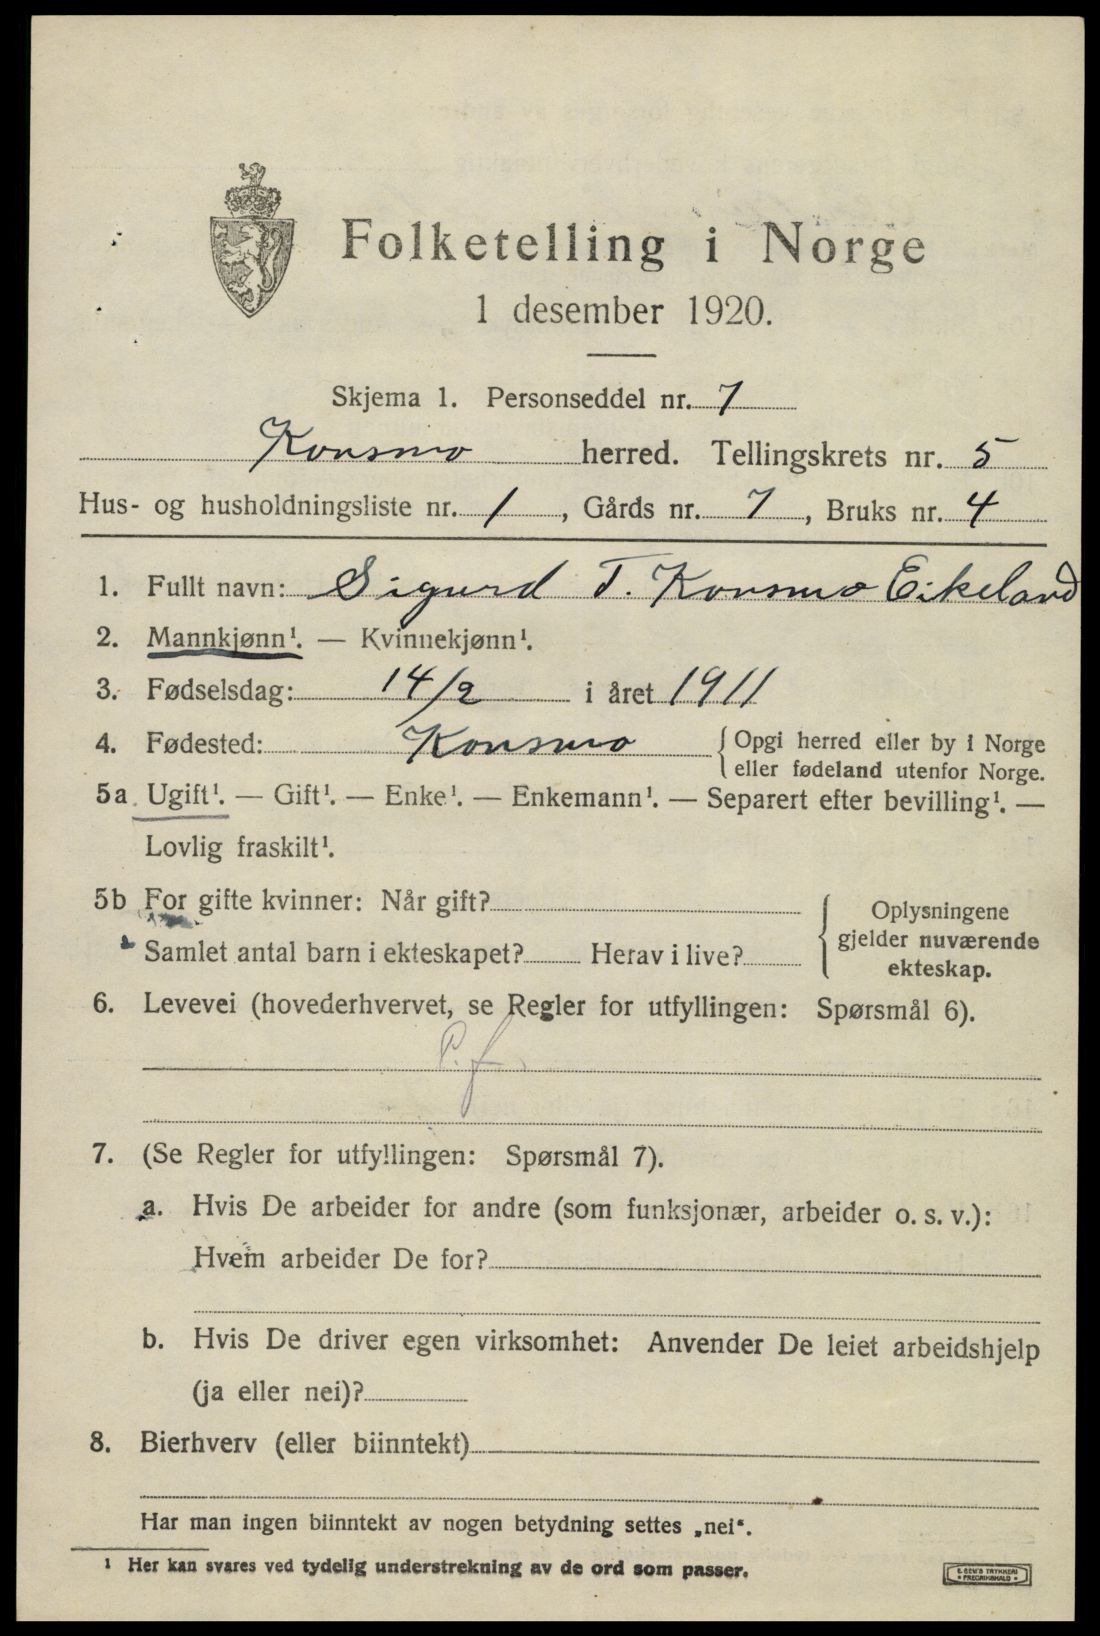 Folketelling i Norge
1 desember 1920.
Skjema 1. Personseddel nr. 7
Konsmo herred. Tellingskrets nr. 5
Hus- og husholdningsliste nr. 1, Gårds nr. 7, Bruks nr. 4
1. Fullt navn: Sigurd T. Konsmo Eikeland
2. Mannkjønn¹. — Kvinnekjønn¹.
3. Fødselsdag: 14/2 i året 1911
4. Fødested: Konsmo { Opgi herred eller by i Norge
eller fødeland utenfor Norge.
5a Ugift¹. — Gift¹. — Enke¹. — Enkemann¹. — Separert efter bevilling¹. —
Lovlig fraskilt¹.
5b For gifte kvinner: Når gift?
Samlet antal barn i ekteskapet? Herav i live?
{ Oplysningene
gjelder nuværende
ekteskap.
6. Levevei (hovederhvervet, se Regler for utfyllingen: Spørsmål 6).
P.f
7. (Se Regler for utfyllingen: Spørsmål 7).
a. Hvis De arbeider for andre (som funksjonær, arbeider o. s. v.):
Hvem arbeider De for?
b. Hvis De driver egen virksomhet: Anvender De leiet arbeidshjelp
(ja eller nei)?
8. Bierhverv (eller biinntekt)
Har man ingen biinntekt av nogen betydning settes „nei“.
¹ Her kan svares ved tydelig understrekning av de ord som passer.
E. SEM'S TRYKKERI
• FREDRIKSHALD •